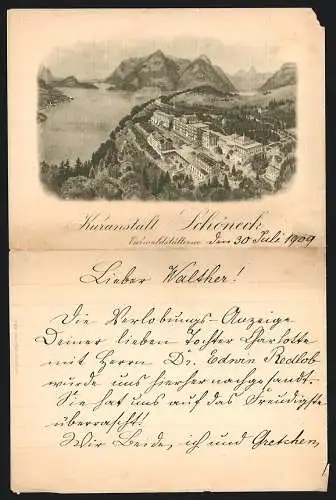 Kuranstalt Schöneck
Vierwaldstättersee den 30 Juli 1909
Lieber Walther!
Die Verlobungs-Anzeige
Deiner lieben Tochter Charlotte
mit Herrn Dr. Edwin Redlob
wurde uns hierher nachgesandt.
Sie hat uns auf das Freudigste
überrascht!
Wir Beide, ich und Gretchen,